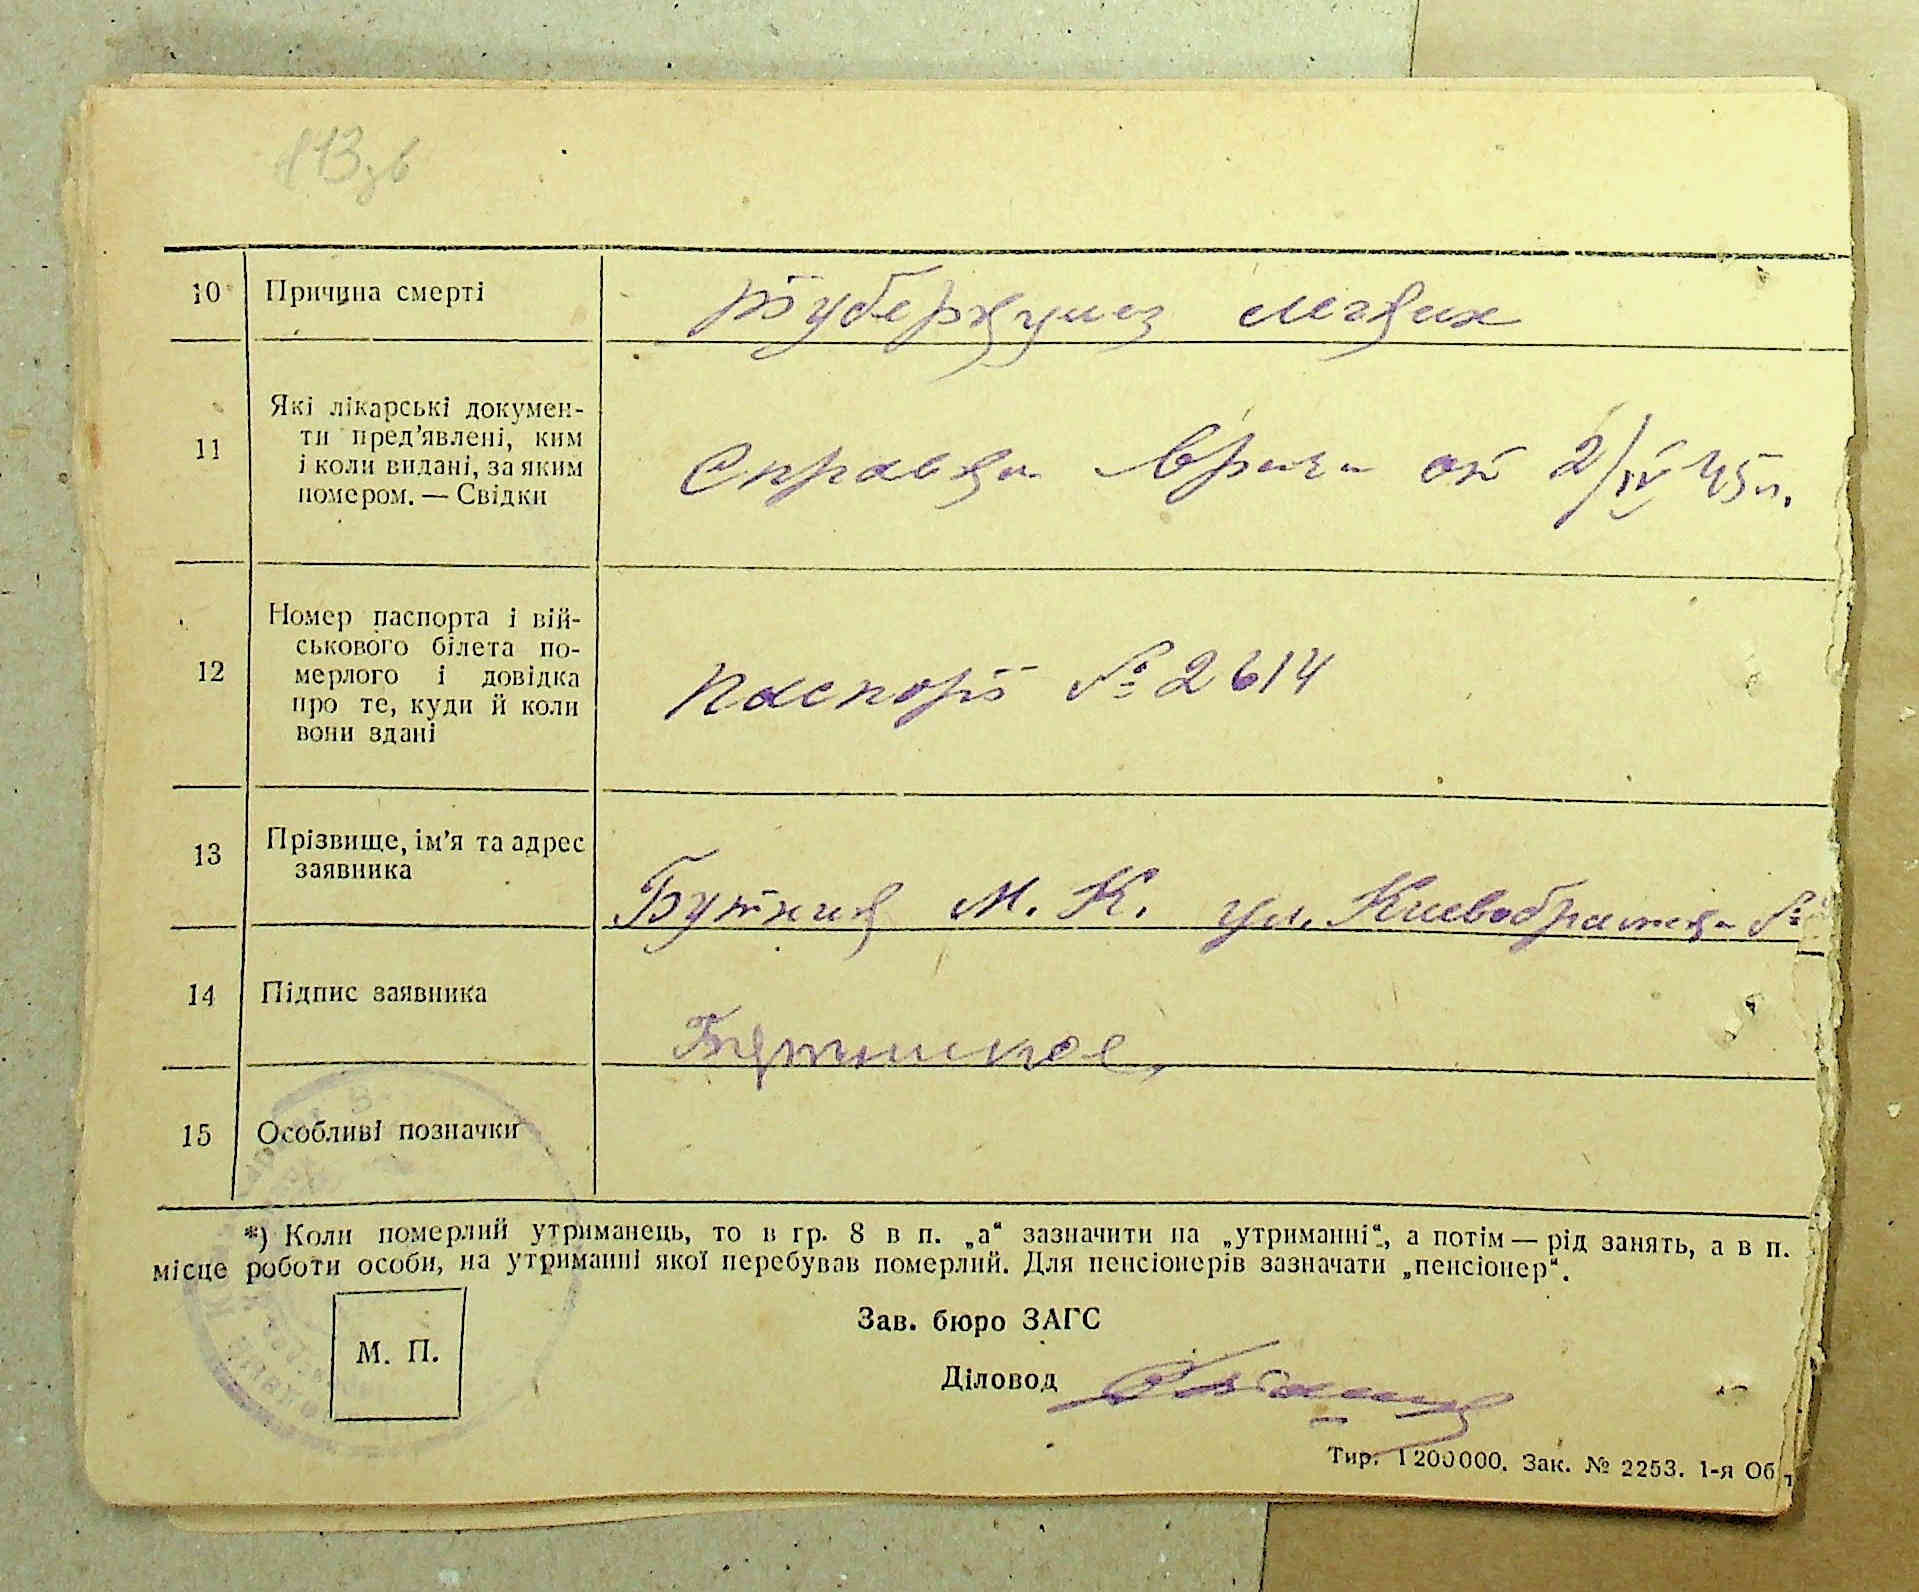 113зв
10 Причина смерті
Туберкулез легких
11 Які лікарські докумен-
ти пред'явлені, ким
і коли видані, за яким
номером. — Свідки
Справка врача от 2/IV 45 г.
12 Номер паспорта і вій-
ськового білета по-
мерлого і довідка
про те, куди й коли
вони здані
Паспорт № 2614
13 Прізвище, ім'я та адрес
заявника
Бутник М. К. ул. №
14 Підпис заявника
15 Особливі позначки
*) Коли померлий утриманець, то в гр. 8 в п. „а“ зазначити на „утриманні“, а потім — рід занять, а в п.
місце роботи особи, на утриманні якої перебував померлий. Для пенсіонерів зазначати „пенсіонер“.
М. П.
Зав. бюро ЗАГС
Діловод
Тир. 1200000. Зак. № 2253. 1-я Об